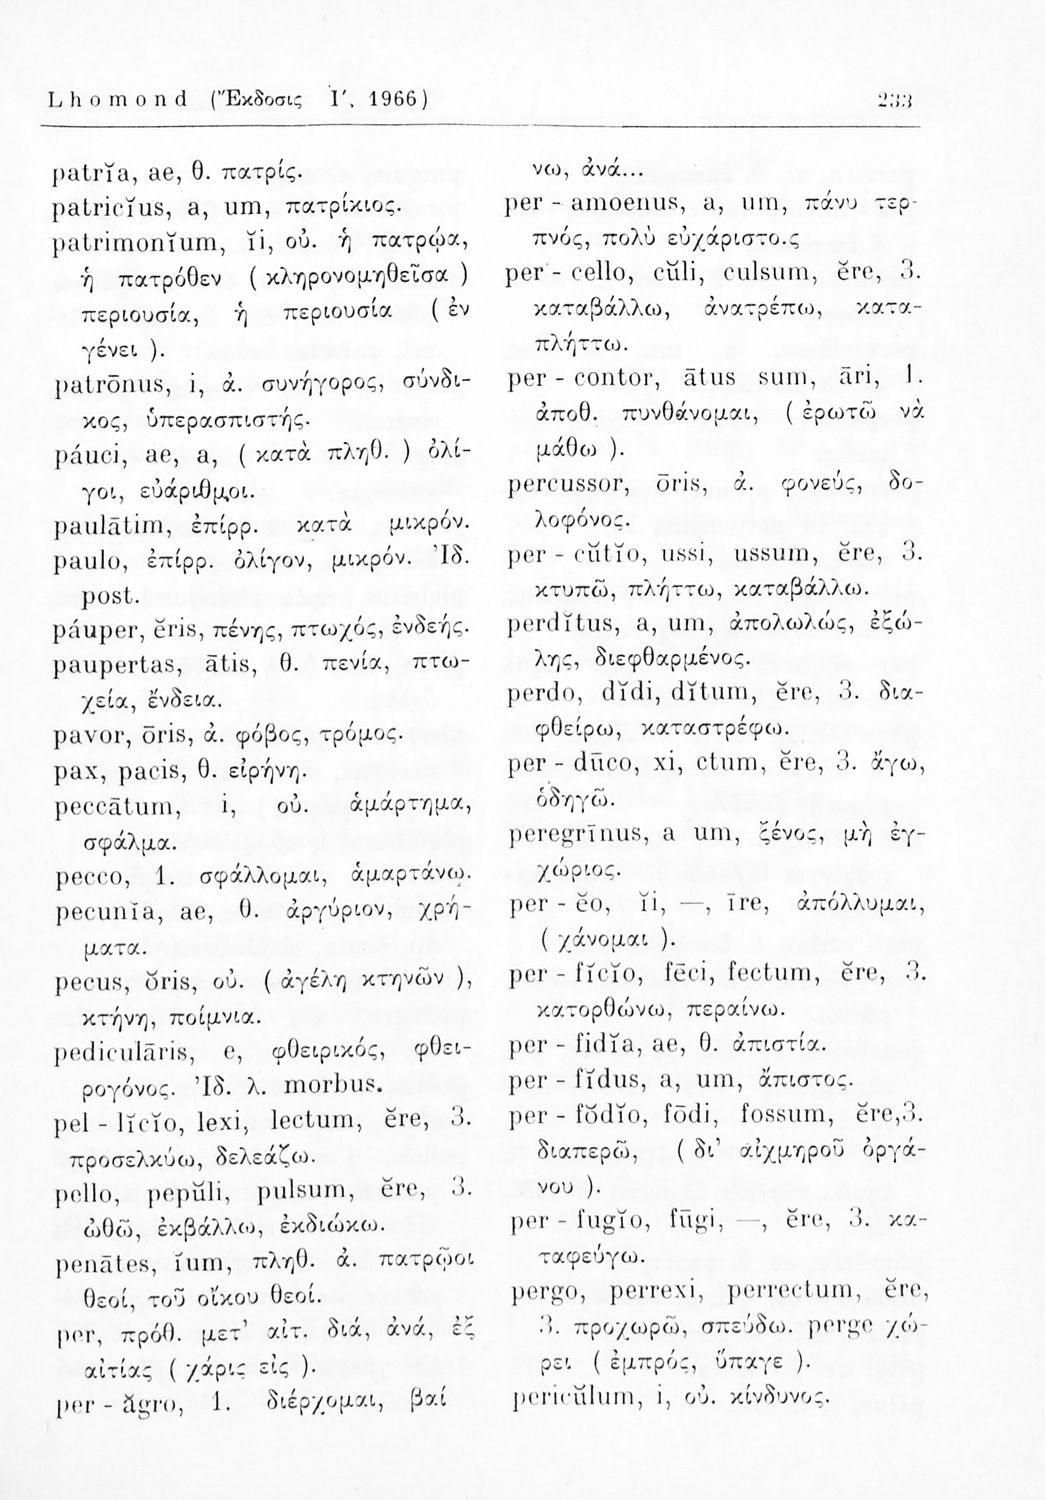 Lhomond (Ἔκδοσις Ι΄, 1966) 233
patrĭa, ae, θ. πατρίς.
patricĭus, a, um, πατρίκιος.
patrimonĭum, ĭi, οὐ. ἡ πατρῴα,
ἡ πατρόθεν ( κληρονομηθεῖσα )
περιουσία, ἡ περιουσία ( ἐν
γένει ).
patrōnus, i, ἀ. συνήγορος, σύνδι-
κος, ὑπερασπιστής.
páuci, ae, a, ( κατὰ πληθ. ) ὀλί-
γοι, εὐάριθμοι.
paulātim, ἐπίρρ. κατὰ μικρόν.
paulo, ἐπίρρ. ὀλίγον, μικρόν. Ἰδ.
post.
páuper, ĕris, πένης, πτωχός, ἐνδεής.
paupertas, ātis, θ. πενία, πτω-
χεία, ἔνδεια.
pavor, ōris, ἀ. φόβος, τρόμος.
pax, pacis, θ. εἰρήνη.
peccātum, i, οὐ. ἁμάρτημα,
σφάλμα.
pecco, 1. σφάλλομαι, ἁμαρτάνω.
pecunĭa, ae, θ. ἀργύριον, χρή-
ματα.
pecus, ŏris, οὐ. ( ἀγέλη κτηνῶν ),
κτήνη, ποίμνια.
pediculāris, e, φθειρικός, φθει-
ρογόνος. Ἰδ. λ. morbus.
pel - lĭcĭo, lexi, lectum, ĕre, 3.
προσελκύω, δελεάζω.
pello, pepŭli, pulsum, ĕre, 3.
ὠθῶ, ἐκβάλλω, ἐκδιώκω.
penātes, ĭum, πληθ. ἀ. πατρῷοι
θεοί, τοῦ οἴκου θεοί.
per, πρόθ. μετ᾽ αἰτ. διά, ἀνά, ἐξ
αἰτίας ( χάρις εἰς ).
per - ăgro, 1. διέρχομαι, βαί
νω, ἀνά...
per - amoenus, a, um, πάνυ τερ-
πνός, πολὺ εὐχάριστο.ς
per - cello, cŭli, culsum, ĕre, 3.
καταβάλλω, ἀνατρέπω, κατα-
πλήττω.
per - contor, ātus sum, āri, 1.
ἀποθ. πυνθάνομαι, ( ἐρωτῶ νὰ
μάθω ).
percussor, ōris, ἀ. φονεύς, δο-
λοφόνος.
per - cŭtĭo, ussi, ussum, ĕre, 3.
κτυπῶ, πλήττω, καταβάλλω.
perdĭtus, a, um, ἀπολωλώς, ἐξώ-
λης, διεφθαρμένος.
perdo, dĭdi, dĭtum, ĕre, 3. δια-
φθείρω, καταστρέφω.
per - dūco, xi, ctum, ĕre, 3. ἄγω,
ὁδηγῶ.
peregrīnus, a um, ξένος, μὴ ἐγ-
χώριος.
per - ĕo, ĭi, —, īre, ἀπόλλυμαι,
( χάνομαι ).
per - fĭcĭo, fēci, fectum, ĕre, 3.
κατορθώνω, περαίνω.
per - fidĭa, ae, θ. ἀπιστία.
per - fĭdus, a, um, ἄπιστος.
per - fŏdĭo, fōdi, fossum, ĕre,3.
διαπερῶ, ( δι᾽ αἰχμηροῦ ὀργά-
νου ).
per - fugĭo, fūgi, —, ĕre, 3. κα-
ταφεύγω.
pergo, perrexi, perrectum, ĕre,
3. προχωρῶ, σπεύδω. perge χώ-
ρει ( ἐμπρός, ὕπαγε ).
pericŭlum, i, οὐ. κίνδυνος.